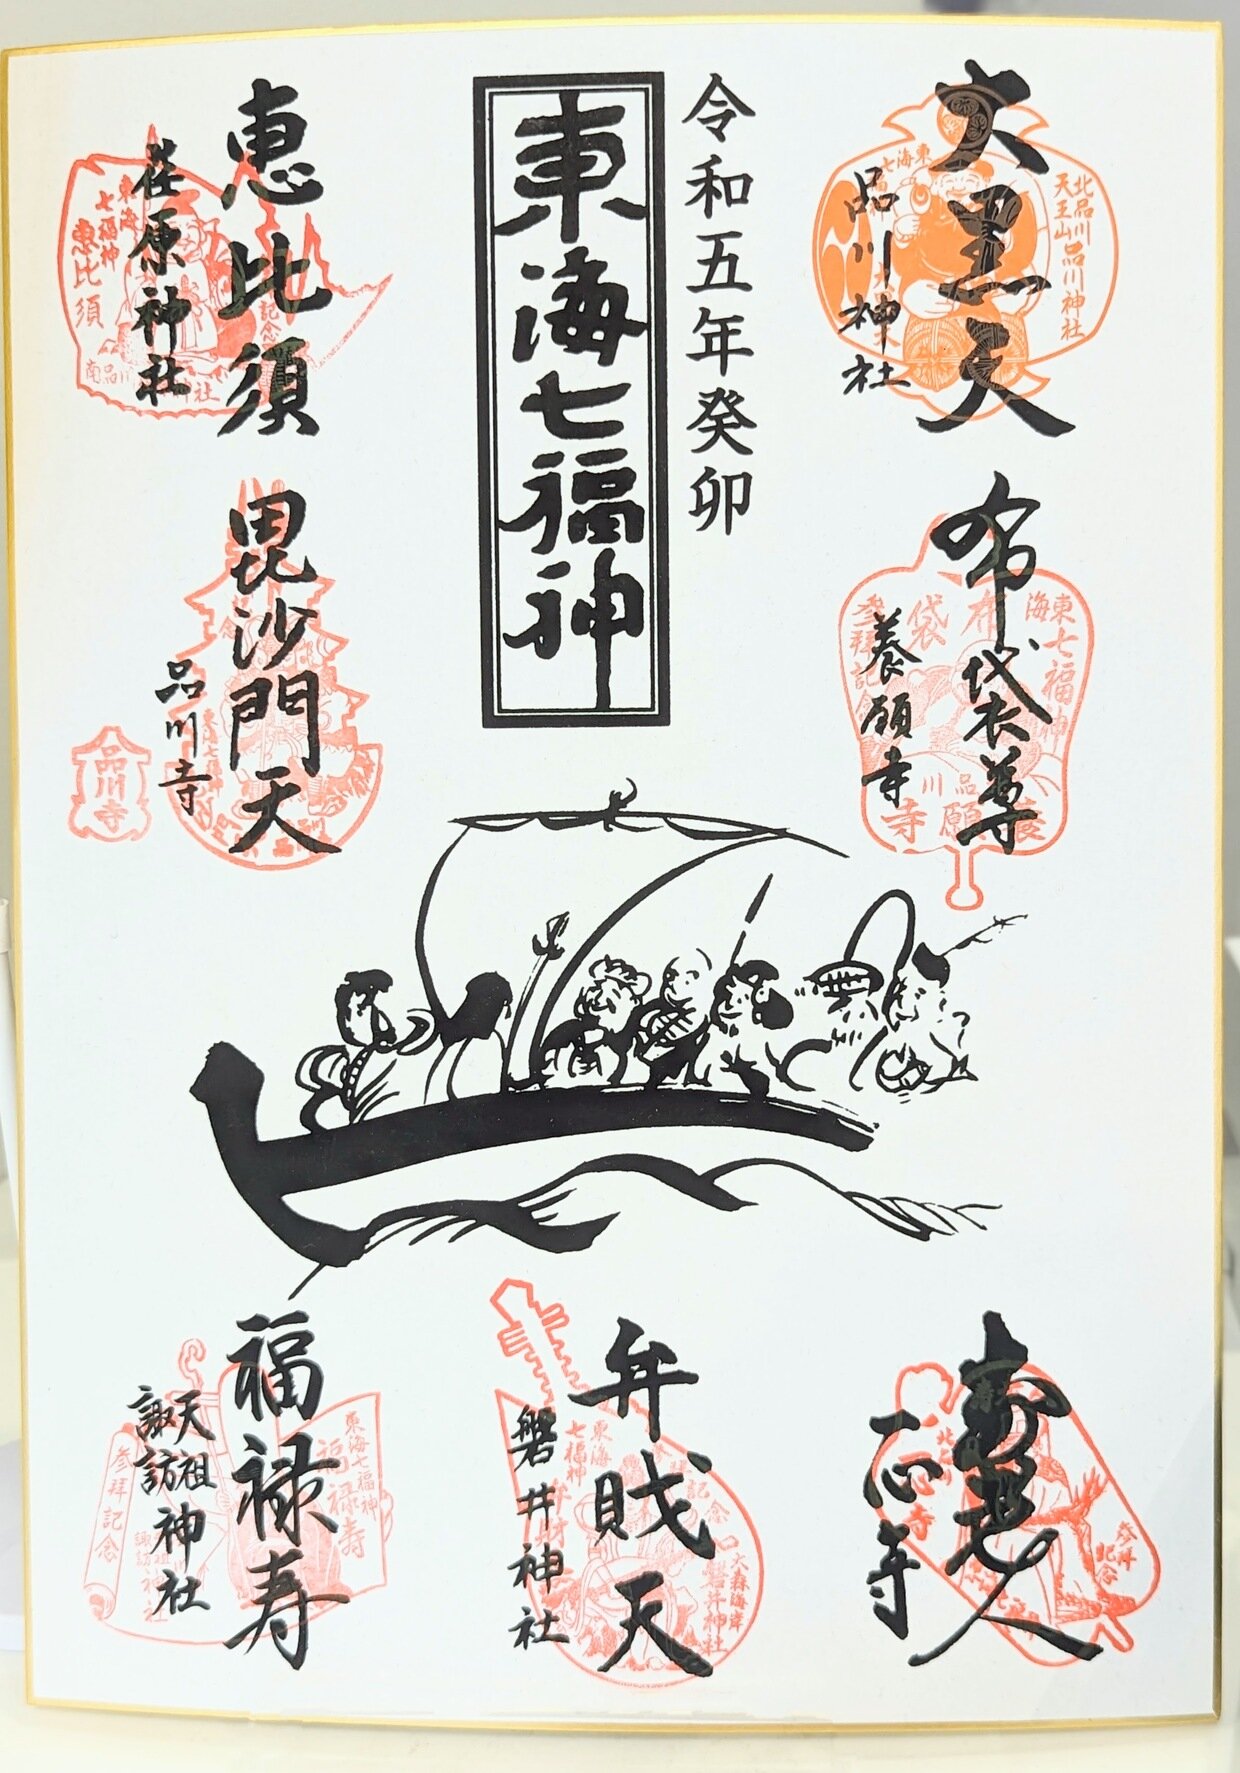 令和五年癸卯
東海七福神
大黒天
品川神社
東海七福
北品川
天王山 品川神社
布袋尊
養願寺
東海七福神
布袋
参拝記念
品川
養願寺
寿老人
一心寺
参拝
記念
恵比須
荏原神社
東海
七福神
恵比須
記念
毘沙門天
品川寺
品川寺
弁財天
磐井神社
東海
七福神
記念
大森海岸
磐井神社
福禄寿
天祖
諏訪
神社
東海七福神
福禄寿
参拝記念